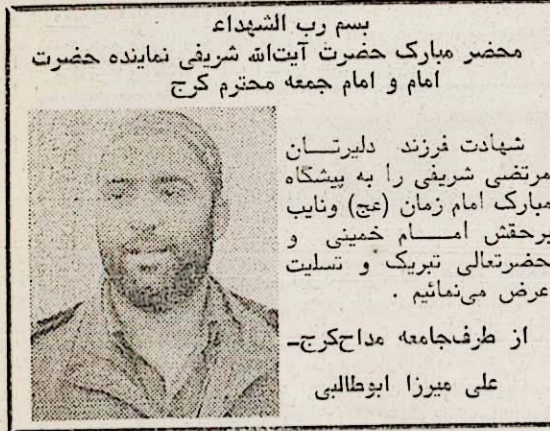 بسم رب الشهداء
محضر مبارک حضرت آیت‌الله شریفی نماینده حضرت
امام و امام جمعه محترم کرج
شهادت فرزند دلیرتـــان
مرتضی شریفی را به پیشگاه
مبارک امام زمان (عج) ونایب
برحقش امـــام خمینی و
حضرتعالی تبریک و تسلیت
عرض می‌نمائیم .
از طرف‌جامعه مداح‌کرج‌ـ
علی میرزا ابوطالبی